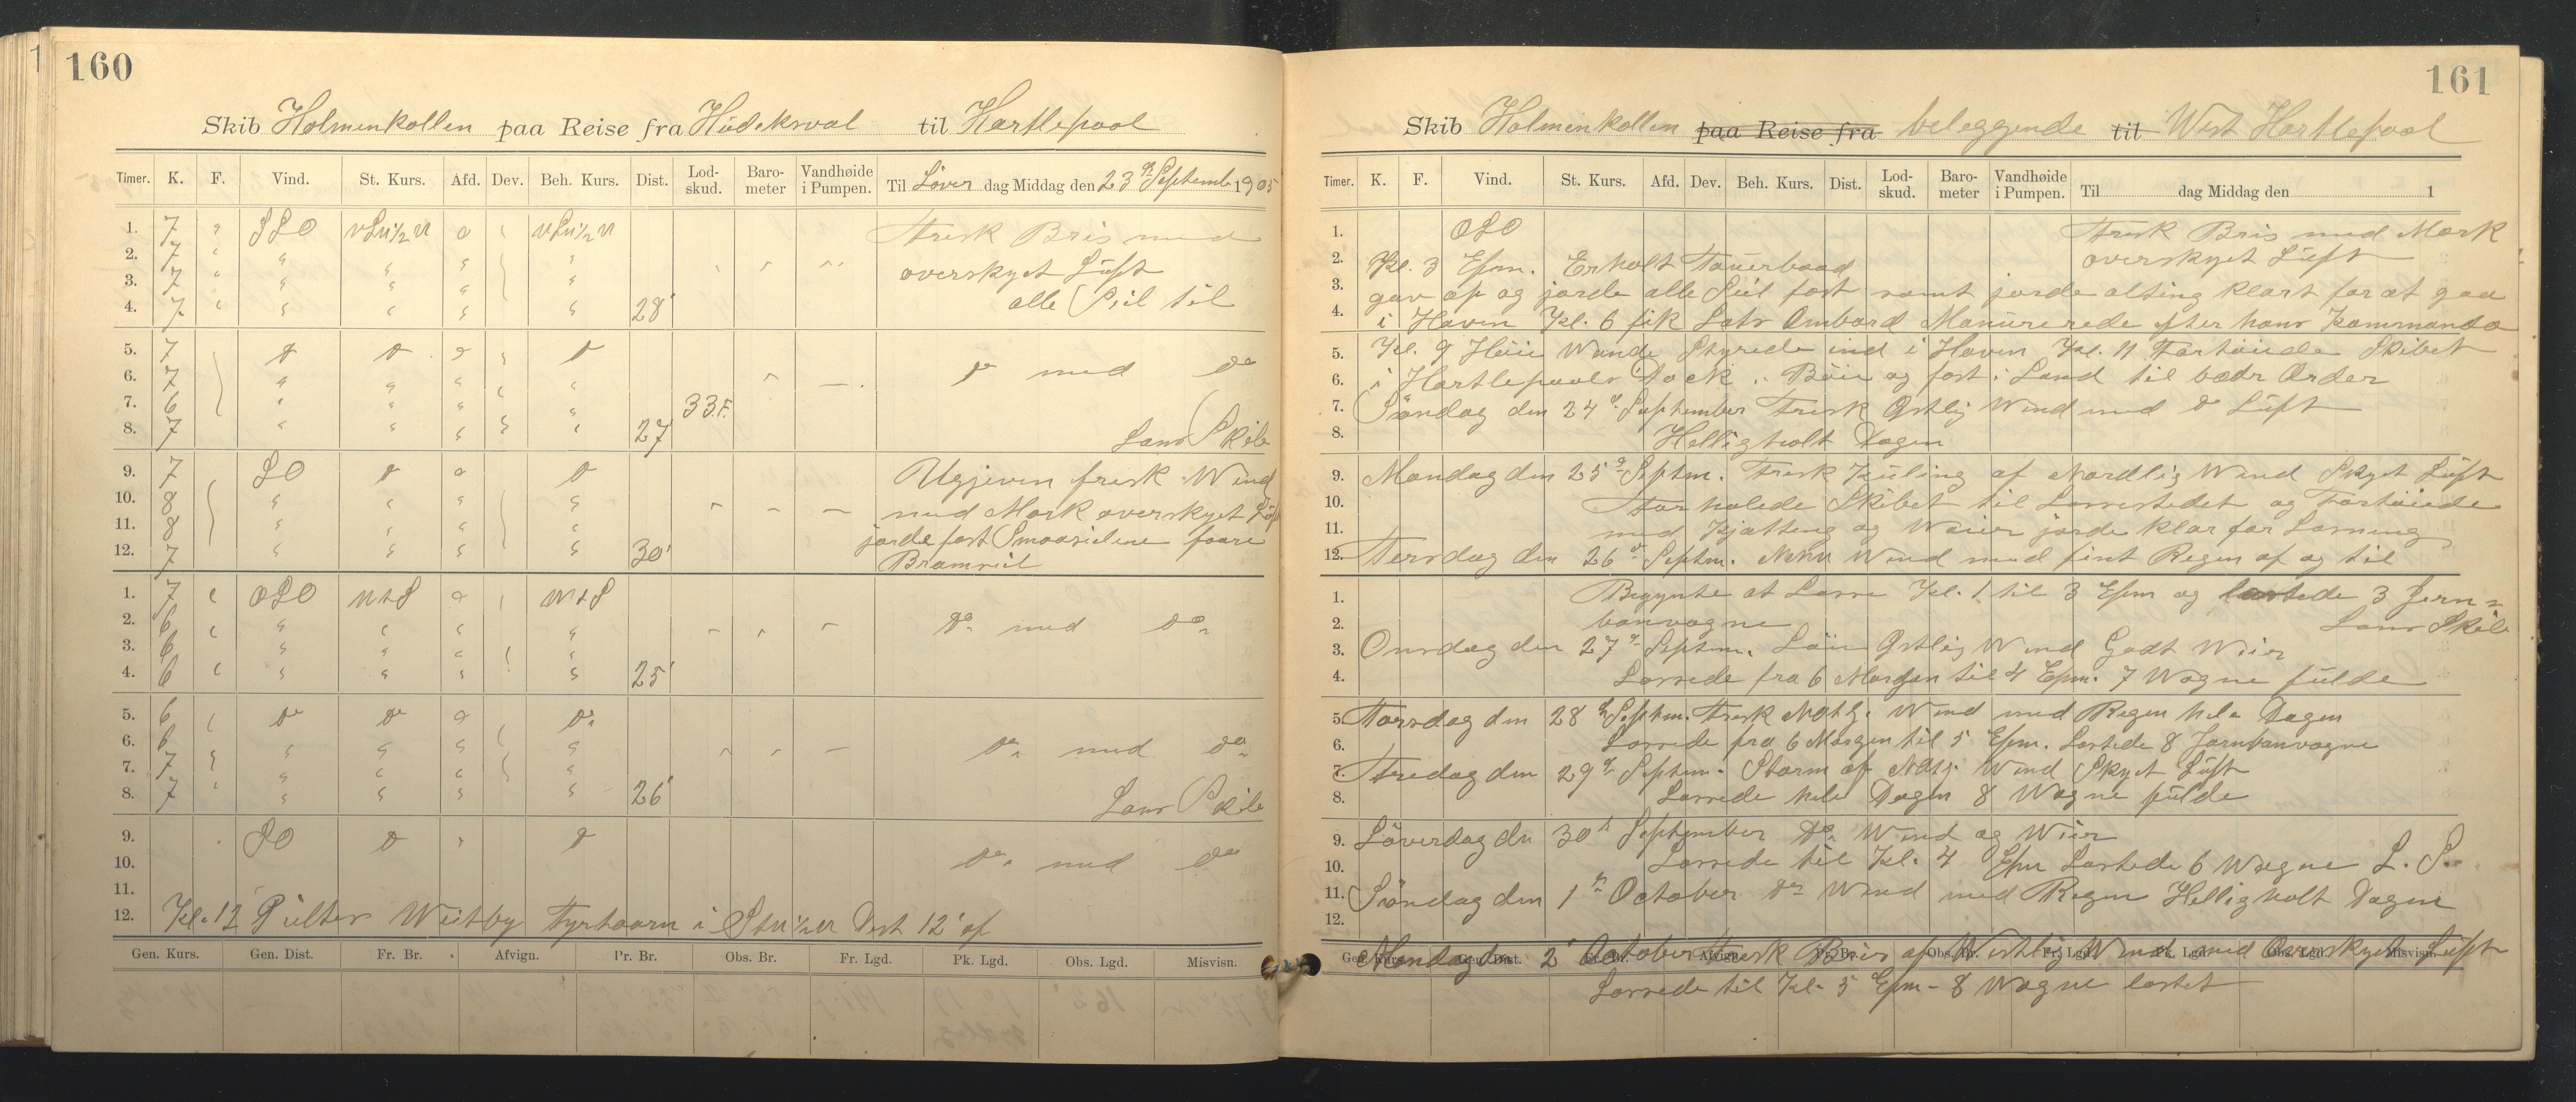 160
Skib Holmenkollen paa Reise fra Hudeksval til Hartlepool
Timer. K. F. Vind. St. Kurs. Afd. Dev. Beh. Kurs. Dist. Lod-skud. Baro-meter Vandhøide i Pumpen. Til Löver dag Middag den 23 September 1905
1. 7 " SSO o Frisk Bris med
2. 7 " " " " " overskyet Luft
3. 7 " " " " "
4. 7 " " " " " 28' alle Seil til
5. 7 do do do do do med do
6. 7 " " " "
7. 6 " " " " 33 F.
8. 7 " " " " 27' Lans Skib
9. 7 SO do o do Ugjeven frisk Wind
10. 8 " " " " med Mork overskyet Luft
11. 8 " " " " jorde fast Smaaseilene
12. 7 " " " " 30' Bramseil
1. 7 " OSO NtS o NtS
2. 6 " " " " " do med do
3. 6 " " " "
4. 6 " " " " " 25'
5. 6 do do do do
6. 6 " " " " do med do
7. 7 " " " "
8. 7 " " " " 26' Lans Skib
9. SO do " do
10. do med do
11.
12. Kl. 12 Peiltes Weitby Fyrtaarn i Dist 12' af
Gen. Kurs. Gen. Dist. Fr. Br. Afvign. Pr. Br. Obs. Br. Fr. Lgd. Pk. Lgd. Obs. Lgd. Misvisn.
161
Skib Holmenkollen paa Reise fra beleggende til West Hartlepool
Timer. K. F. Vind. St. Kurs. Afd. Dev. Beh. Kurs. Dist. Lod-skud. Baro-meter Vandhøide i Pumpen. Til dag Middag den 1
1. OSO Frisk Bris med Mork
overskyet Luft
2. Kl. 3 Efm. Erholt Tauerbaad
3. gav op og jorde alle Seil fast samt jorde alting klart for at gaa
4. i Haven Kl. 6 fik Lots Ombord Manurerede efter hans Kommando
5. Kl. 9 Høie Wande Styrede ind i Haven Kl. 11 Fortöiede Skibet
6. i Hartlepools Dock i Böie og fast i Land til bedr Order
7. Söndag den 24 September Frisk Ostlig Wind med do Luft
8. Helligholt Dagen
9. Mandag den 25 Septm. Frisk Kuling af Nordlig Wind Skyet Luft
10. Forhalede Skibet til Lossestedet og Fortöiede
11. med Kjætting og Waier jorde klar for Losning
12. Tersdag den 26 Septm. NNW Wind med fint Regen af og til
1. Begynte at Losse Kl. 1 til 3 Efm og lastede 3 Jern=
2. banvogne Lans Skib
3. Onsdag den 27 Septm. Löi Ostlig Wind Godt Weir
4. Lossede fra 6 Morgen til 4 Efm. 7 Wogne fulde
5. Torsdag den 28 Septm. Frisk Notlg. Wind med Regen hele Dagen
6. Lossede fra 6 Morgen til 5 Efm. Lastede 8 Jernbanvogne
7. Fredag den 29 Septem. Storm af Notlg. Wind Skyet Luft
8. Lossede hele Dagen 8 Wogne fulde
9. Löverdag den 30 September do Wind og Weir
10. Lossede til Kl. 4 Efm Lastede 6 Wogne L. S.
11. Söndag den 1 October do Wind med Regen Helligholt Dagen
12.
Mandag den 2 October Frisk Bris af Westlig Wind med Overskyet Luft
Gen. Kurs. Gen. Dist. Fr. Br. Afvign. Pr. Br. Obs. Br. Fr. Lgd. Pk. Lgd. Obs. Lgd. Misvisn.
Lossede til Kl. 5 Efm - 8 Wogne lastet